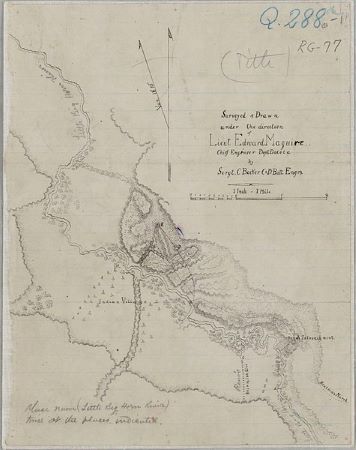 Q. 288-11
RG-77
(Title)
Surveyed & Drawn
under the direction
of
Lieut Edward Maguire
Chief Engineer Dept Dakota
by
Sergt. C. Becker Co D Batt Engrs.
1 Inch = 1 Mile
Little Big Horn River
Indian Village
Reno's
Please name (Little Big Horn River)
time at the places indicated.